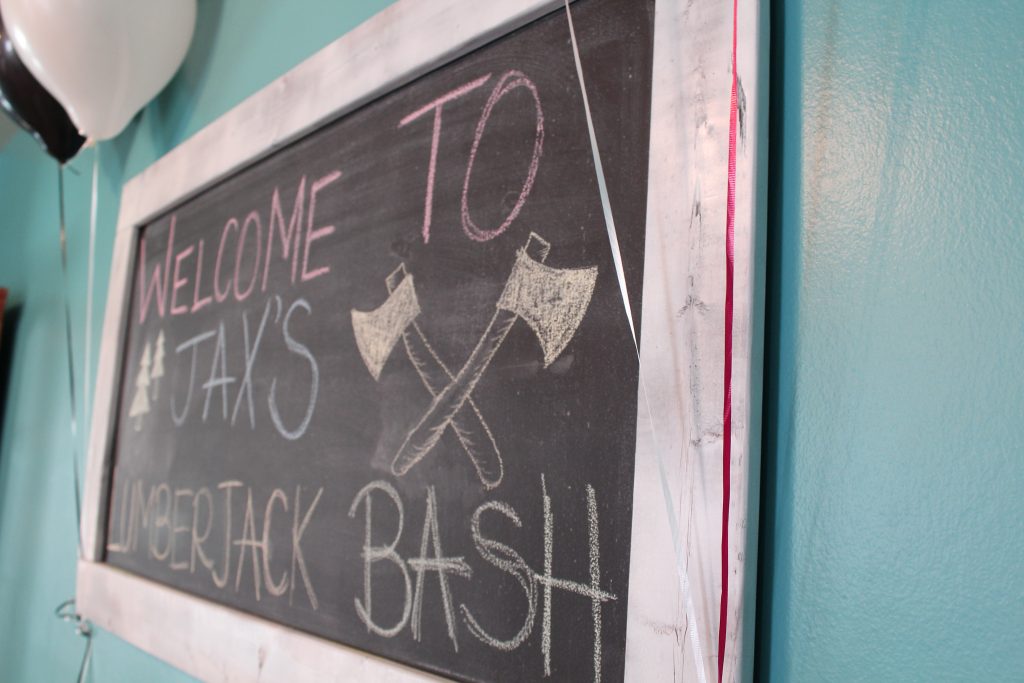 WELCOME TO
JAX'S
LUMBERJACK BASH